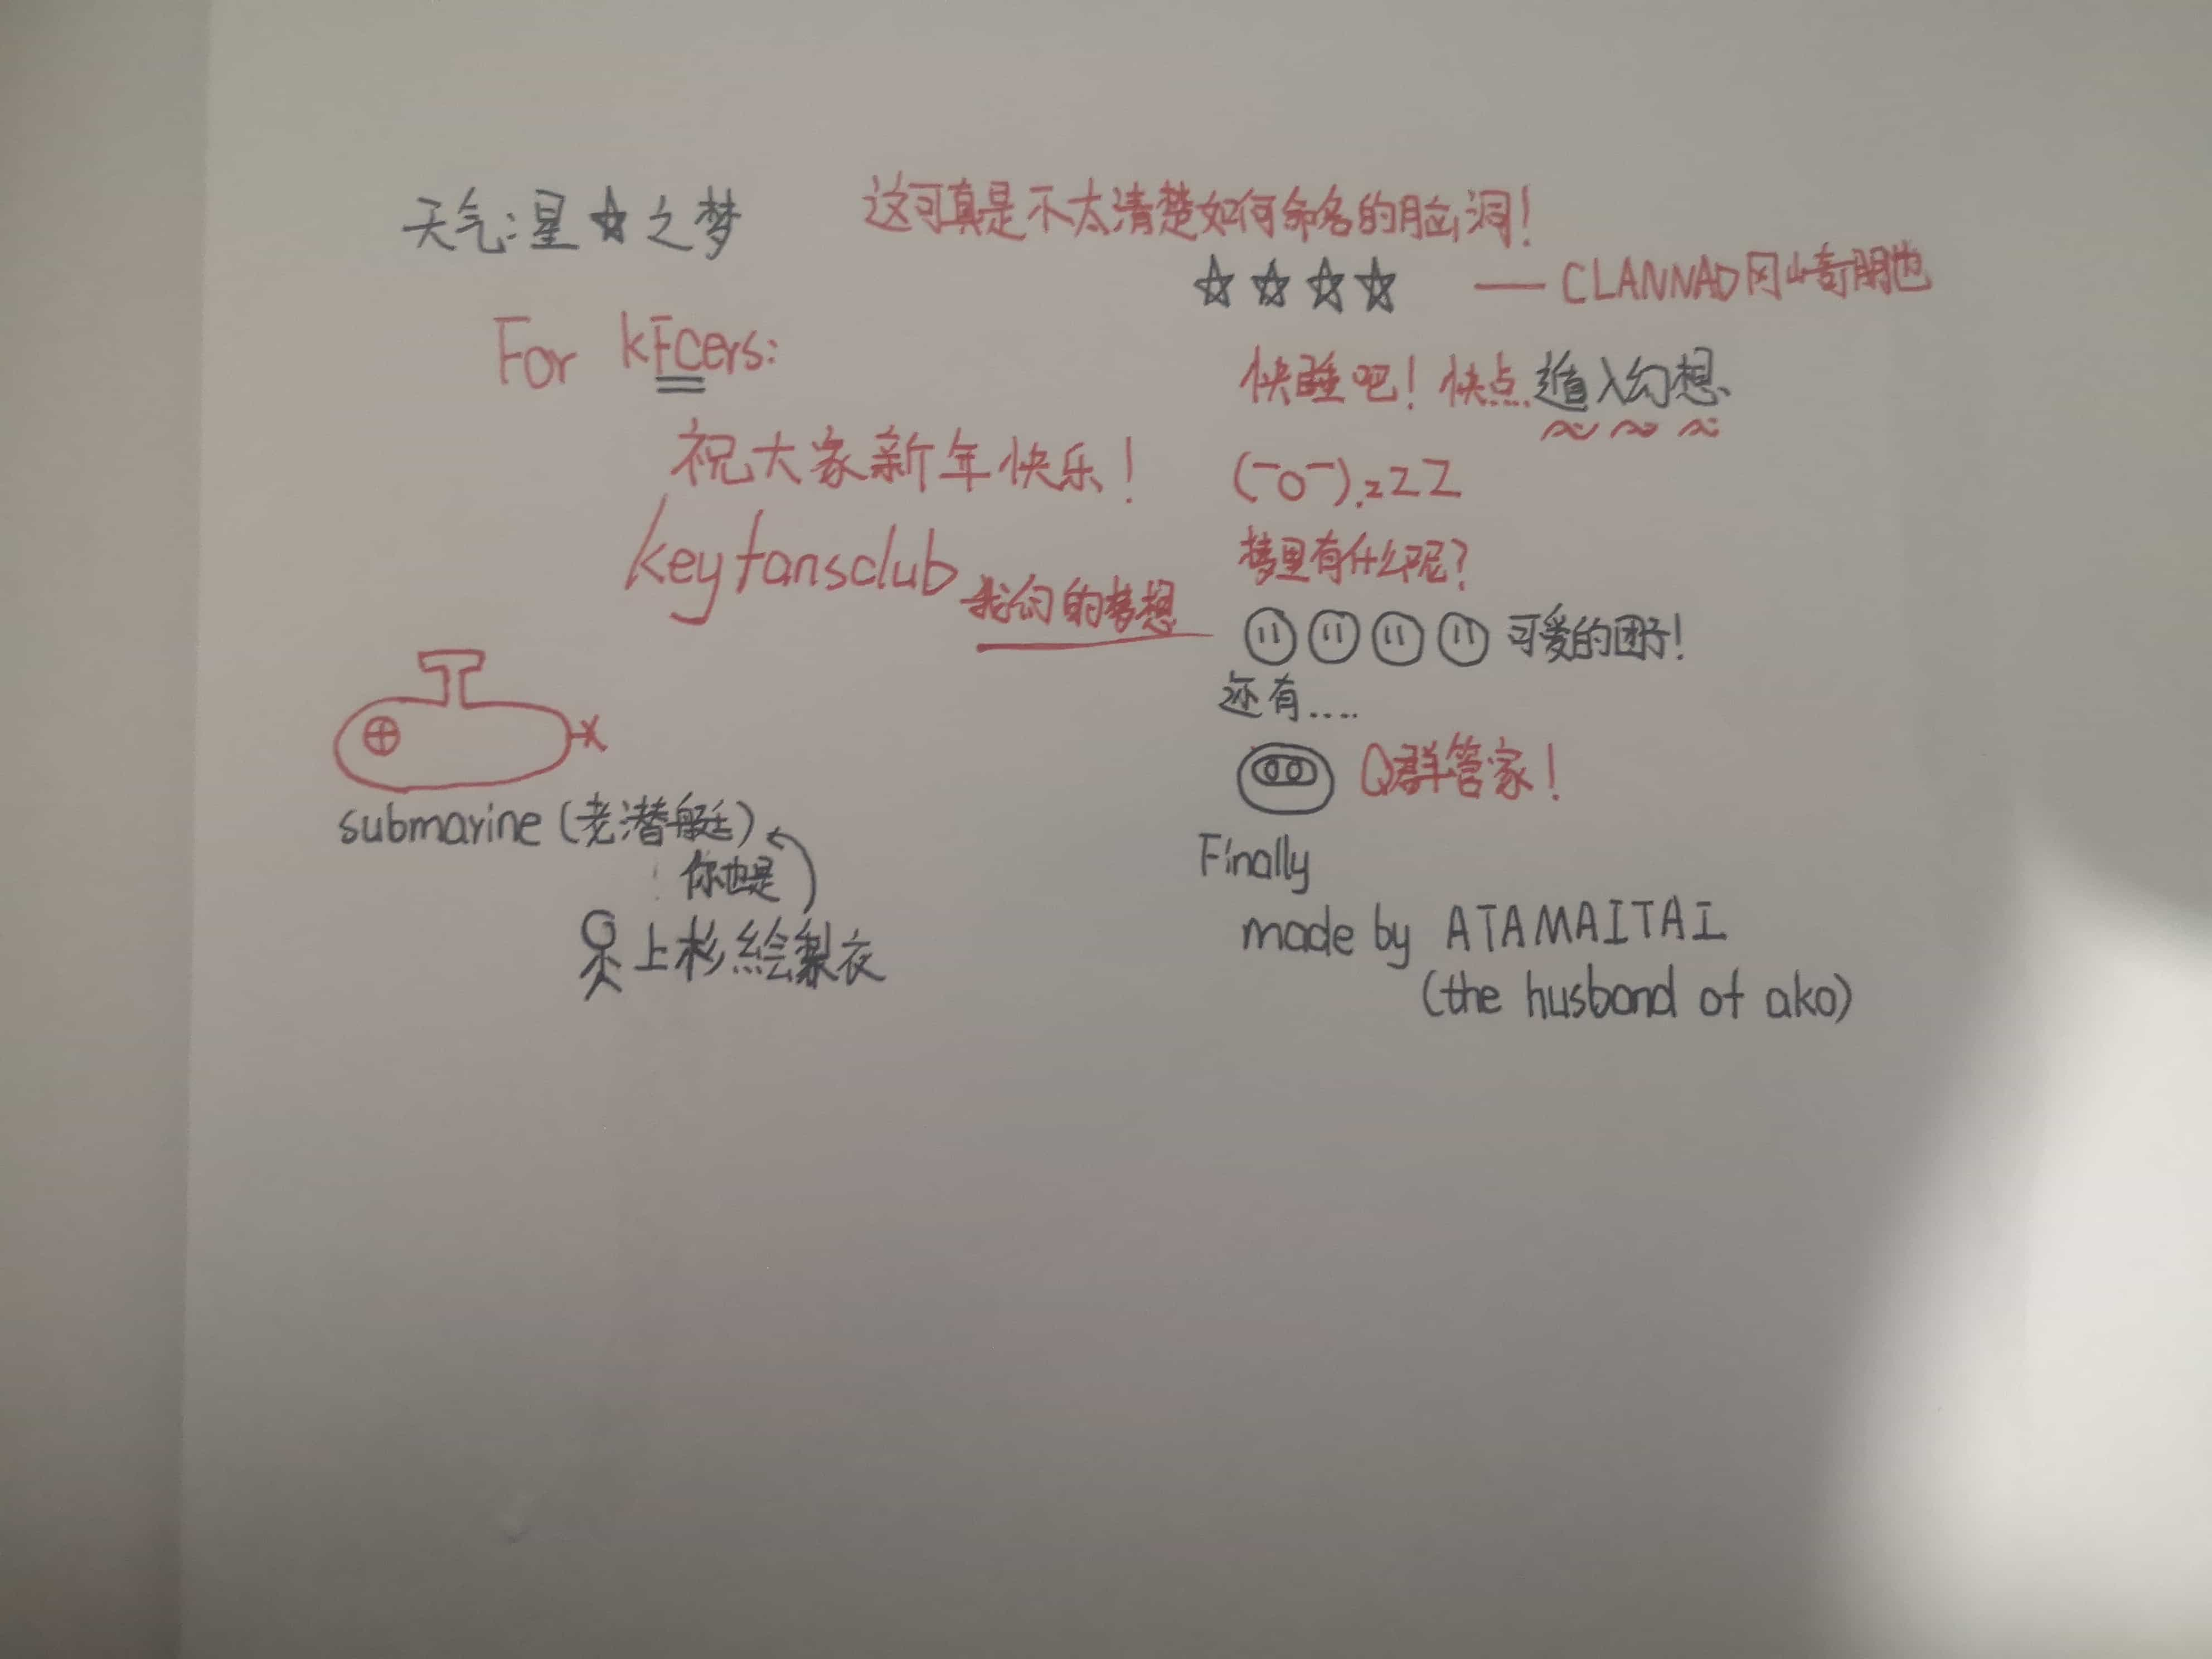 天气:星☆之梦
这可真是不太清楚如何命名的脑洞!
☆☆☆☆ ——CLANNAD冈崎朋也
For KFCers:
祝大家新年快乐!
keyfansclub
我们的梦想
快睡吧!快点遁入幻想、
(-o-).zZZ
梦里有什么呢?
可爱的团子!
还有....
Q群管家!
submarine(老潜艇)
你也是
上杉絵梨衣
Finally
made by ATAMAITAI
(the husband of ako)